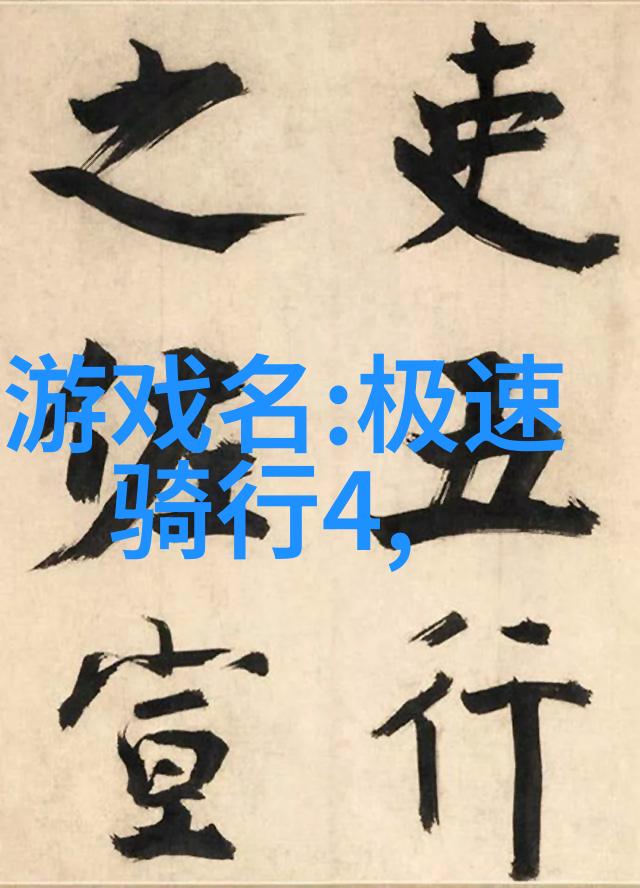 游戏名:极速
骑行4,
吏五行
之佐宣